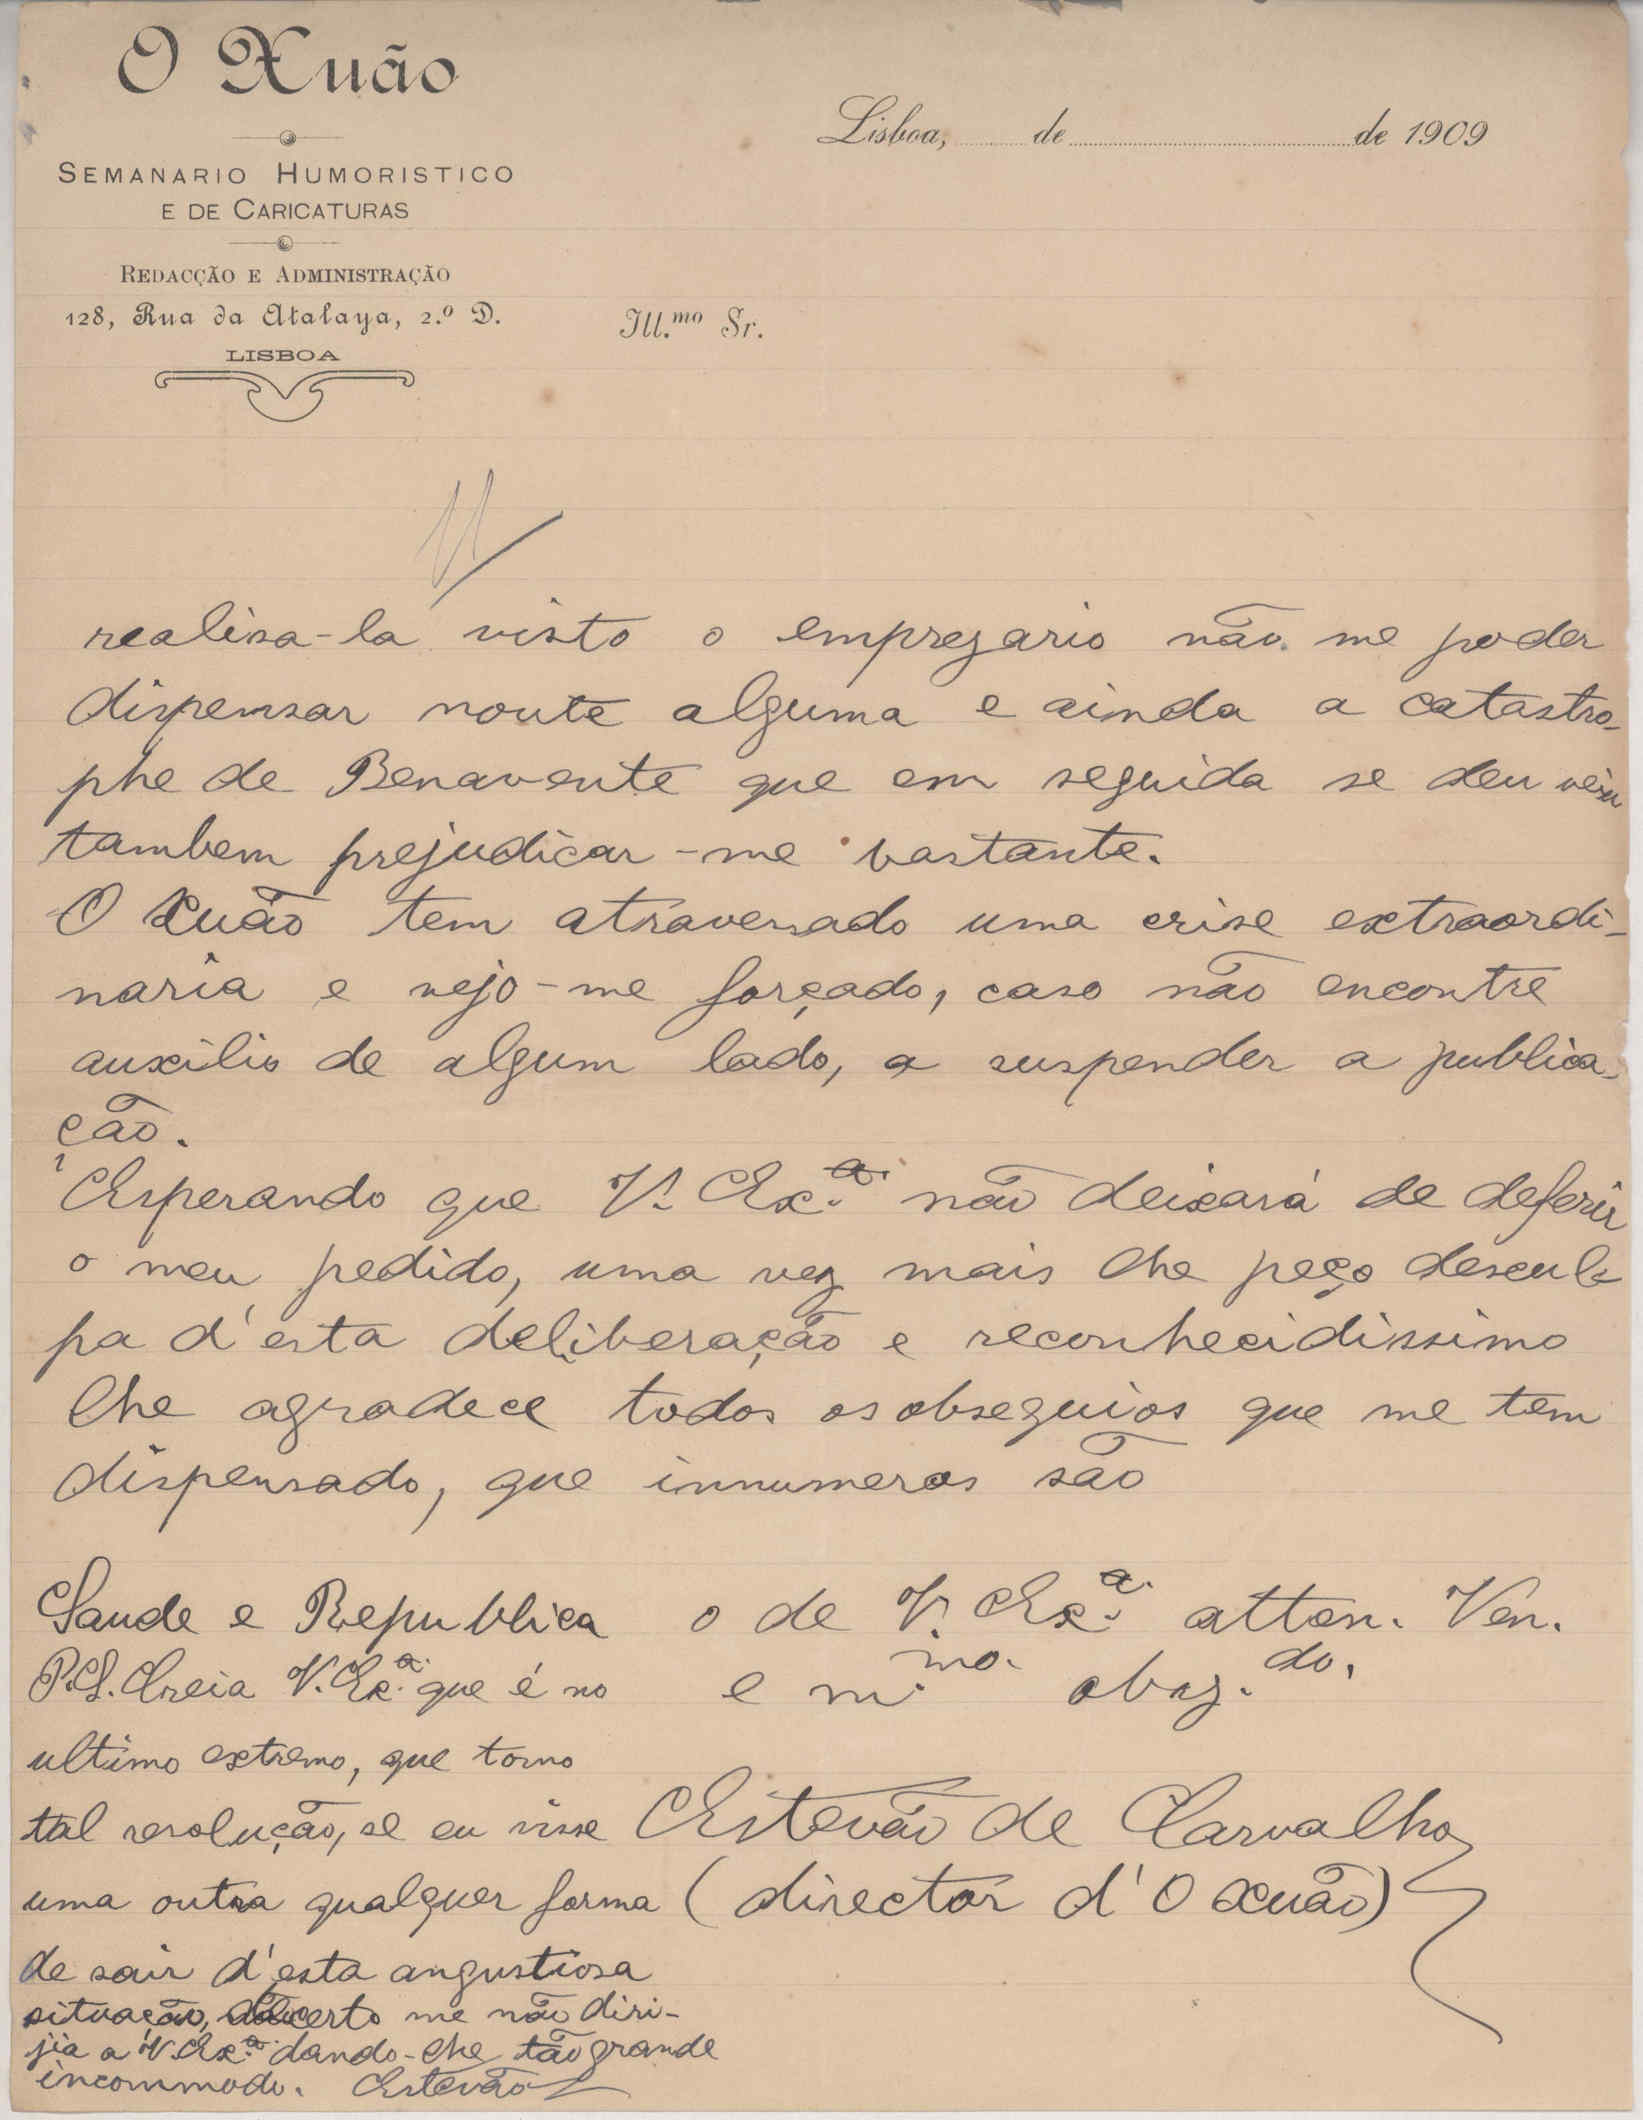 O Xuão
SEMANARIO HUMORISTICO
E DE CARICATURAS
REDACÇÃO E ADMINISTRAÇÃO
128, Rua da Atalaya, 2.º D.
LISBOA
Lisboa, ........ de ........................ de 1909
Ill.mo Sr.
realisa-la visto o emprezario não me poder
dispensar noute alguma e ainda a catastro-
phe de Benavente que em seguida se deu veiu
tambem prejudicar-me bastante.
O Xuão tem atravessado uma crise extraordi-
naria e vejo-me forçado, caso não encontre
auxilio de algum lado, a suspender a publica-
ção.
Esperando que V. Ex.a não deixará de deferir
o meu pedido, uma vez mais lhe peço descul-
pa d'esta deliberação e reconhecidissimo
lhe agradece todos os obsequios que me tem
dispensado, que innumeros são
Saude e Republica o de V. Ex.a atten. Ven.
e m.mo obrg.do.
Estevão de Carvalho
(director d'O Xuão)
P.S. Creia V. Ex.a que é no
ultimo extremo, que tomo
tal resolução, se eu visse
uma outra qualquer forma
de sair d'esta angustiosa
situação, decerto me não diri-
jia a V. Ex.a dando-lhe tão grande
incommodo. Estevão